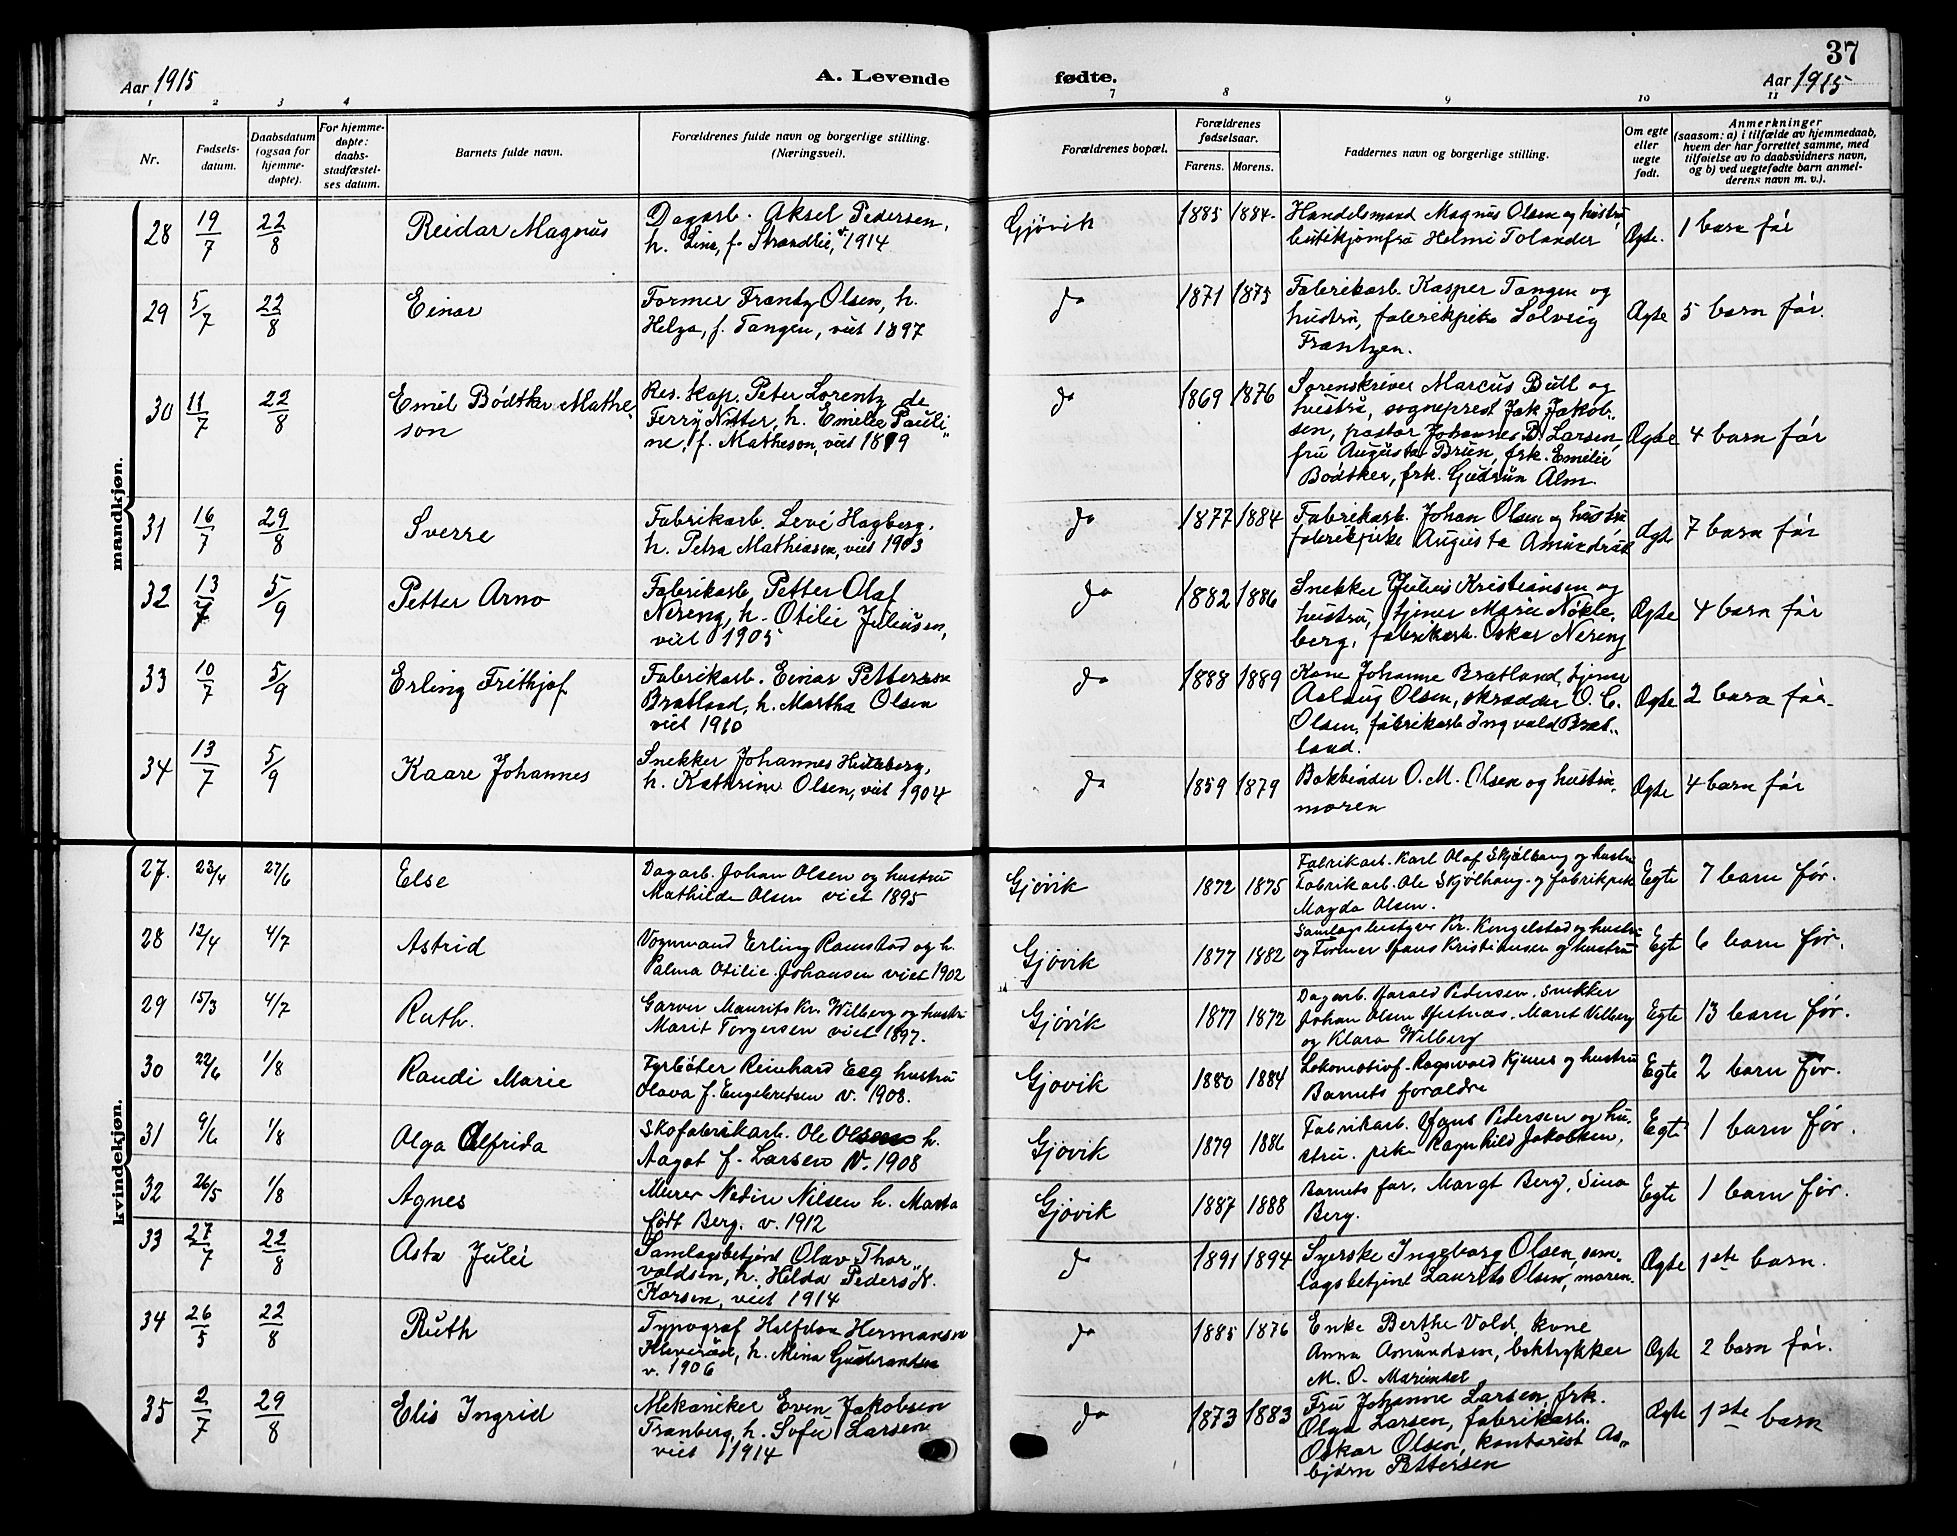 37
Aar 1915
A. Levende
fødte.
Aar 1915
1 2 3 4
7 8 9 10 11
Nr.
Fødsels-
datum.
Daabsdatum
(ogsaa for
hjemme-
døpte).
For hjemme-
døpte:
daabs-
stadfæstel-
ses datum.
Barnets fulde navn.
Forældrenes fulde navn og borgerlige stilling.
(Næringsvei).
Forældrenes bopæl.
Forældrenes
fødselsaar.
Farens. Morens.
Faddernes navn og borgerlige stilling.
Om egte
eller
uegte
født.
Anmerkninger
(saasom: a) i tilfælde av hjemmedaab,
hvem der har forrettet samme, med
tilføielse av to daabsvidners navn,
og b) ved uegtefødte barn anmel-
derens navn m. v.).
mandkjøn.
28 19/7 22/8 Reidar Magnus
Dagarb. Aksel Pedersen,
h. Lina, f. Strandlie, v. 1914
Gjøvik 1885 1884
Handelsmand Magnus Olsen og hustru,
butikjomfru Helmi Tolander
Ægte. 1 barn før
29 5/7 22/8 Einar
Former Frantz Olsen, h.
Helga, f. Tangen, viet 1897
do 1871 1875
Fabrikarb. Kasper Tangen og
hustru, fabrikpike Solveig
Frantzen.
Ægte 5 barn før.
30 11/7 22/8 Emil Bødtker Mathe-
son
Res. kap. Peter Lorentz de
Ferry Nitter, h. Emilie Pauli-
ne, f. Matheson, viet
do 1869 1876
Sorenskriver Marcus Bull og
hustru, sogneprest Jak. Jakob-
sen, pastor Johannes B. Larsen,
fru Augusta Brun, frk. Emilie
Bødtker, frk. Gudrun Alm.
Ægte 4 barn før
31 16/7 29/8 Sverre
Fabrikarb. Levi Hagberg,
h. Petra Mathiasen, viet 1903
do 1877 1884
Fabrikarb. Johan Olsen og hustru
fabrikpike Augusta Amundsrud
Ægte 7 barn før
32 13/7 5/9 Petter Arno
Fabrikarb. Petter Olaf
Nereng, h. Otilie Juliussen,
viet 1905
do 1882 1886
Snekker Julius Kristiansen og
hustru, tjener Marie Nøkle-
berg, fabrikarb. Oskar Nereng
Ægte 4 barn før
33 10/7 5/9 Erling Frithjof
Fabrikarb. Einar Pettersen
Bratland, h. Martha Olsen
viet 1910
do 1888 1889
Kone Johanne Bratland, tjener
Aslaug Olsen, skrædder O. C.
Olsen, fabrikarb. Ingvald Brat-
land.
Ægte 2 barn før.
34 13/7 5/9 Kaare Johannes
Snekker Johannes
h. Kathrine Olsen, viet 1904
do 1859 1879
Bokbinder O. M. Olsen og hustru,
moren
Ægte 4 barn før
kvindekjøn.
27. 23/4 27/6 Else
Dagarb. Johan Olsen og hustru
Mathilde Olsen viet 1895
Gjøvik 1872 1875
Fabrikarb. Karl Olaf Skjølhaug og hustru
Fabrikarb. Ole Skjølhaug og fabrikpike
Magda Olsen.
Egte 7 barn før.
28 12/4 4/7 Astrid
Vognmand Erling Ramstad og h.
Palma Otilie Johansen viet 1902
Gjøvik 1877 1882
Samlagsbestyrer Kr. Kongelstad og hustru
og Former Hans Kristiansen og hustru
Egte 6 barn før.
29 15/3 4/7 Ruth.
Garver Maurits Kr. Wilberg og hustru
Marit Torgersen viet 1897.
Gjøvik 1877 1872
Dagarb. Harald Pedersen. Snekker
Johan Olsen, Marit Vilberg
og Klara Wilberg
Egte 13 barn før.
30 22/6 1/8 Randi Marie
Fyrbøter Reinhard Eeg hustru
Olava f. Engebretsen v. 1908.
Gjøvik 1880 1884
Lokomotivf. Ragnvald Kjenes og hustru
Barnets foræeldre
Egte 2 barn før.
31 9/6 1/8 Olga Alfrida
Skofabrikarb. Ole Olsen h.
Aagot f. Larsen v. 1908
Gjøvik 1879 1886
Fabrikarb. Hans Pedersen og hu-
stru. pike Ragnhild Jakobsen,
Egte 1 barn før.
32 26/5 1/8 Agnes
Murer Nedin Nilsen h. Marta
født Berg. v. 1912
Gjøvik 1887 1888
Barnets far. Margt Berg, Sina
Berg.
Egte 1 barn før.
33 27/7 22/8 Asta Julie
Samlagsbetjent Olav Thor-
valdsen, h. Helda Peders N.
Korsen, viet 1914
do 1891 1894
Syerske Ingeborg Olsen, sam-
lagsbetjent Laurits Olsen, moren.
Ægte 1ste barn.
34 26/5 22/8 Ruth
Typograf Halfdan Hermansen
h. Mina Gudbrandsen
v. 1906
do 1885 1876
Enke Berthe Vold, kone
Anna Amundsen, boktrykker
M. O. Mariendal
Ægte 2 barn før.
35 2/7 29/8 Elis Ingrid
Mekaniker Even Jakobsen
Tranberg, h. Sofie Larsen
viet 1914
do 1873 1883
Fru Johanne Larsen, frk.
Olga Larsen, fabrikarb.
Oskar Olsen, kontorist As-
bjørn Pettersen
Ægte 1ste barn